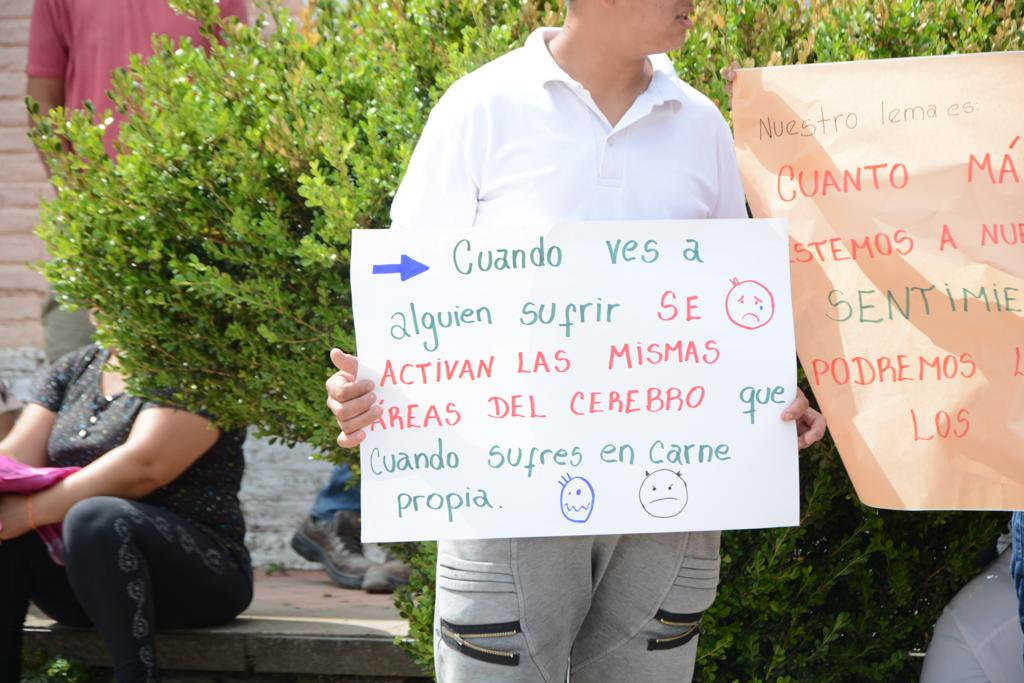 Cuando ves a
alguien sufrir SE
ACTIVAN LAS MISMAS
ÁREAS DEL CEREBRO que
Cuando sufres en carne
propia.
Nuestro lema es:
CUANTO
A
PODREMOS
LOS